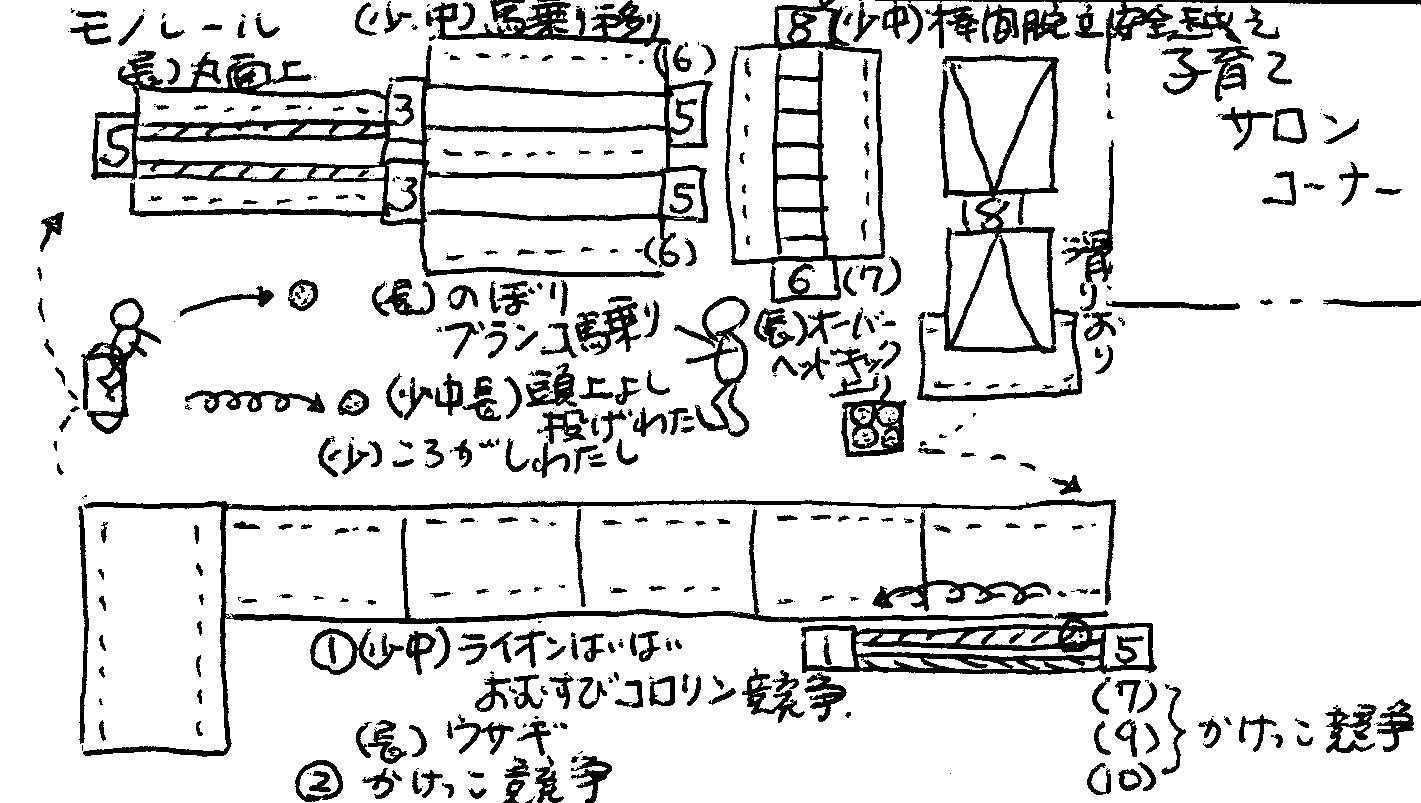 モノレール
(少.中)馬乗り移り
8
(少中)棒間脱立安全越え
(長)丸面上
(6)
子育て
サロン
コーナー
5
3
5
3
5
8
(6)
6
(7)
滑りおり
(長)のぼり
ブランコ馬乗り
(長)オーバー
ヘッドキック
(少中長)頭上よし
投げわたし
(少)ころがしわたし
①(少中)ライオンばいばい
おむすびコロリン競争.
1
5
(7)
(長)ウサギ
(9)
かけっこ競争
②かけっこ競争
(10)